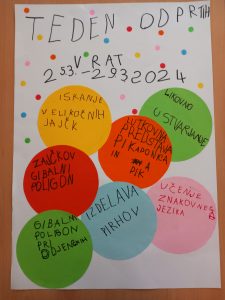 TEDEN ODPRTIH
VRAT
25.3.-29.3.2024
ISKANJE
VELIKONČNIH
JAJČK
LIKOVNO
USTVARJANJE
LUTKOVNA
PREDSTAVA
PIKADONKA
IN
PIK
ZAJČKOV
GIBALNI
POLIGON
IZDELAVA
PIRHOV
UČENJE
ZNAKOVNEGA
JEZIKA
GIBALNI
POLIGON
PRI